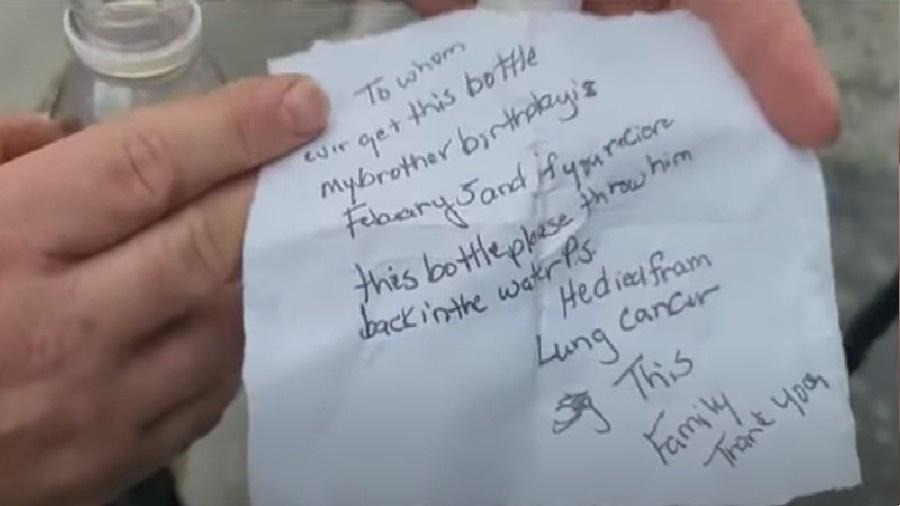 To whom
evir get this bottle
my brother birthday is
Febuary 5 and if you reciere
this bottle please throw him
back in the watr P.S.
He died fram
Lung cancur
This
Family
Thank you